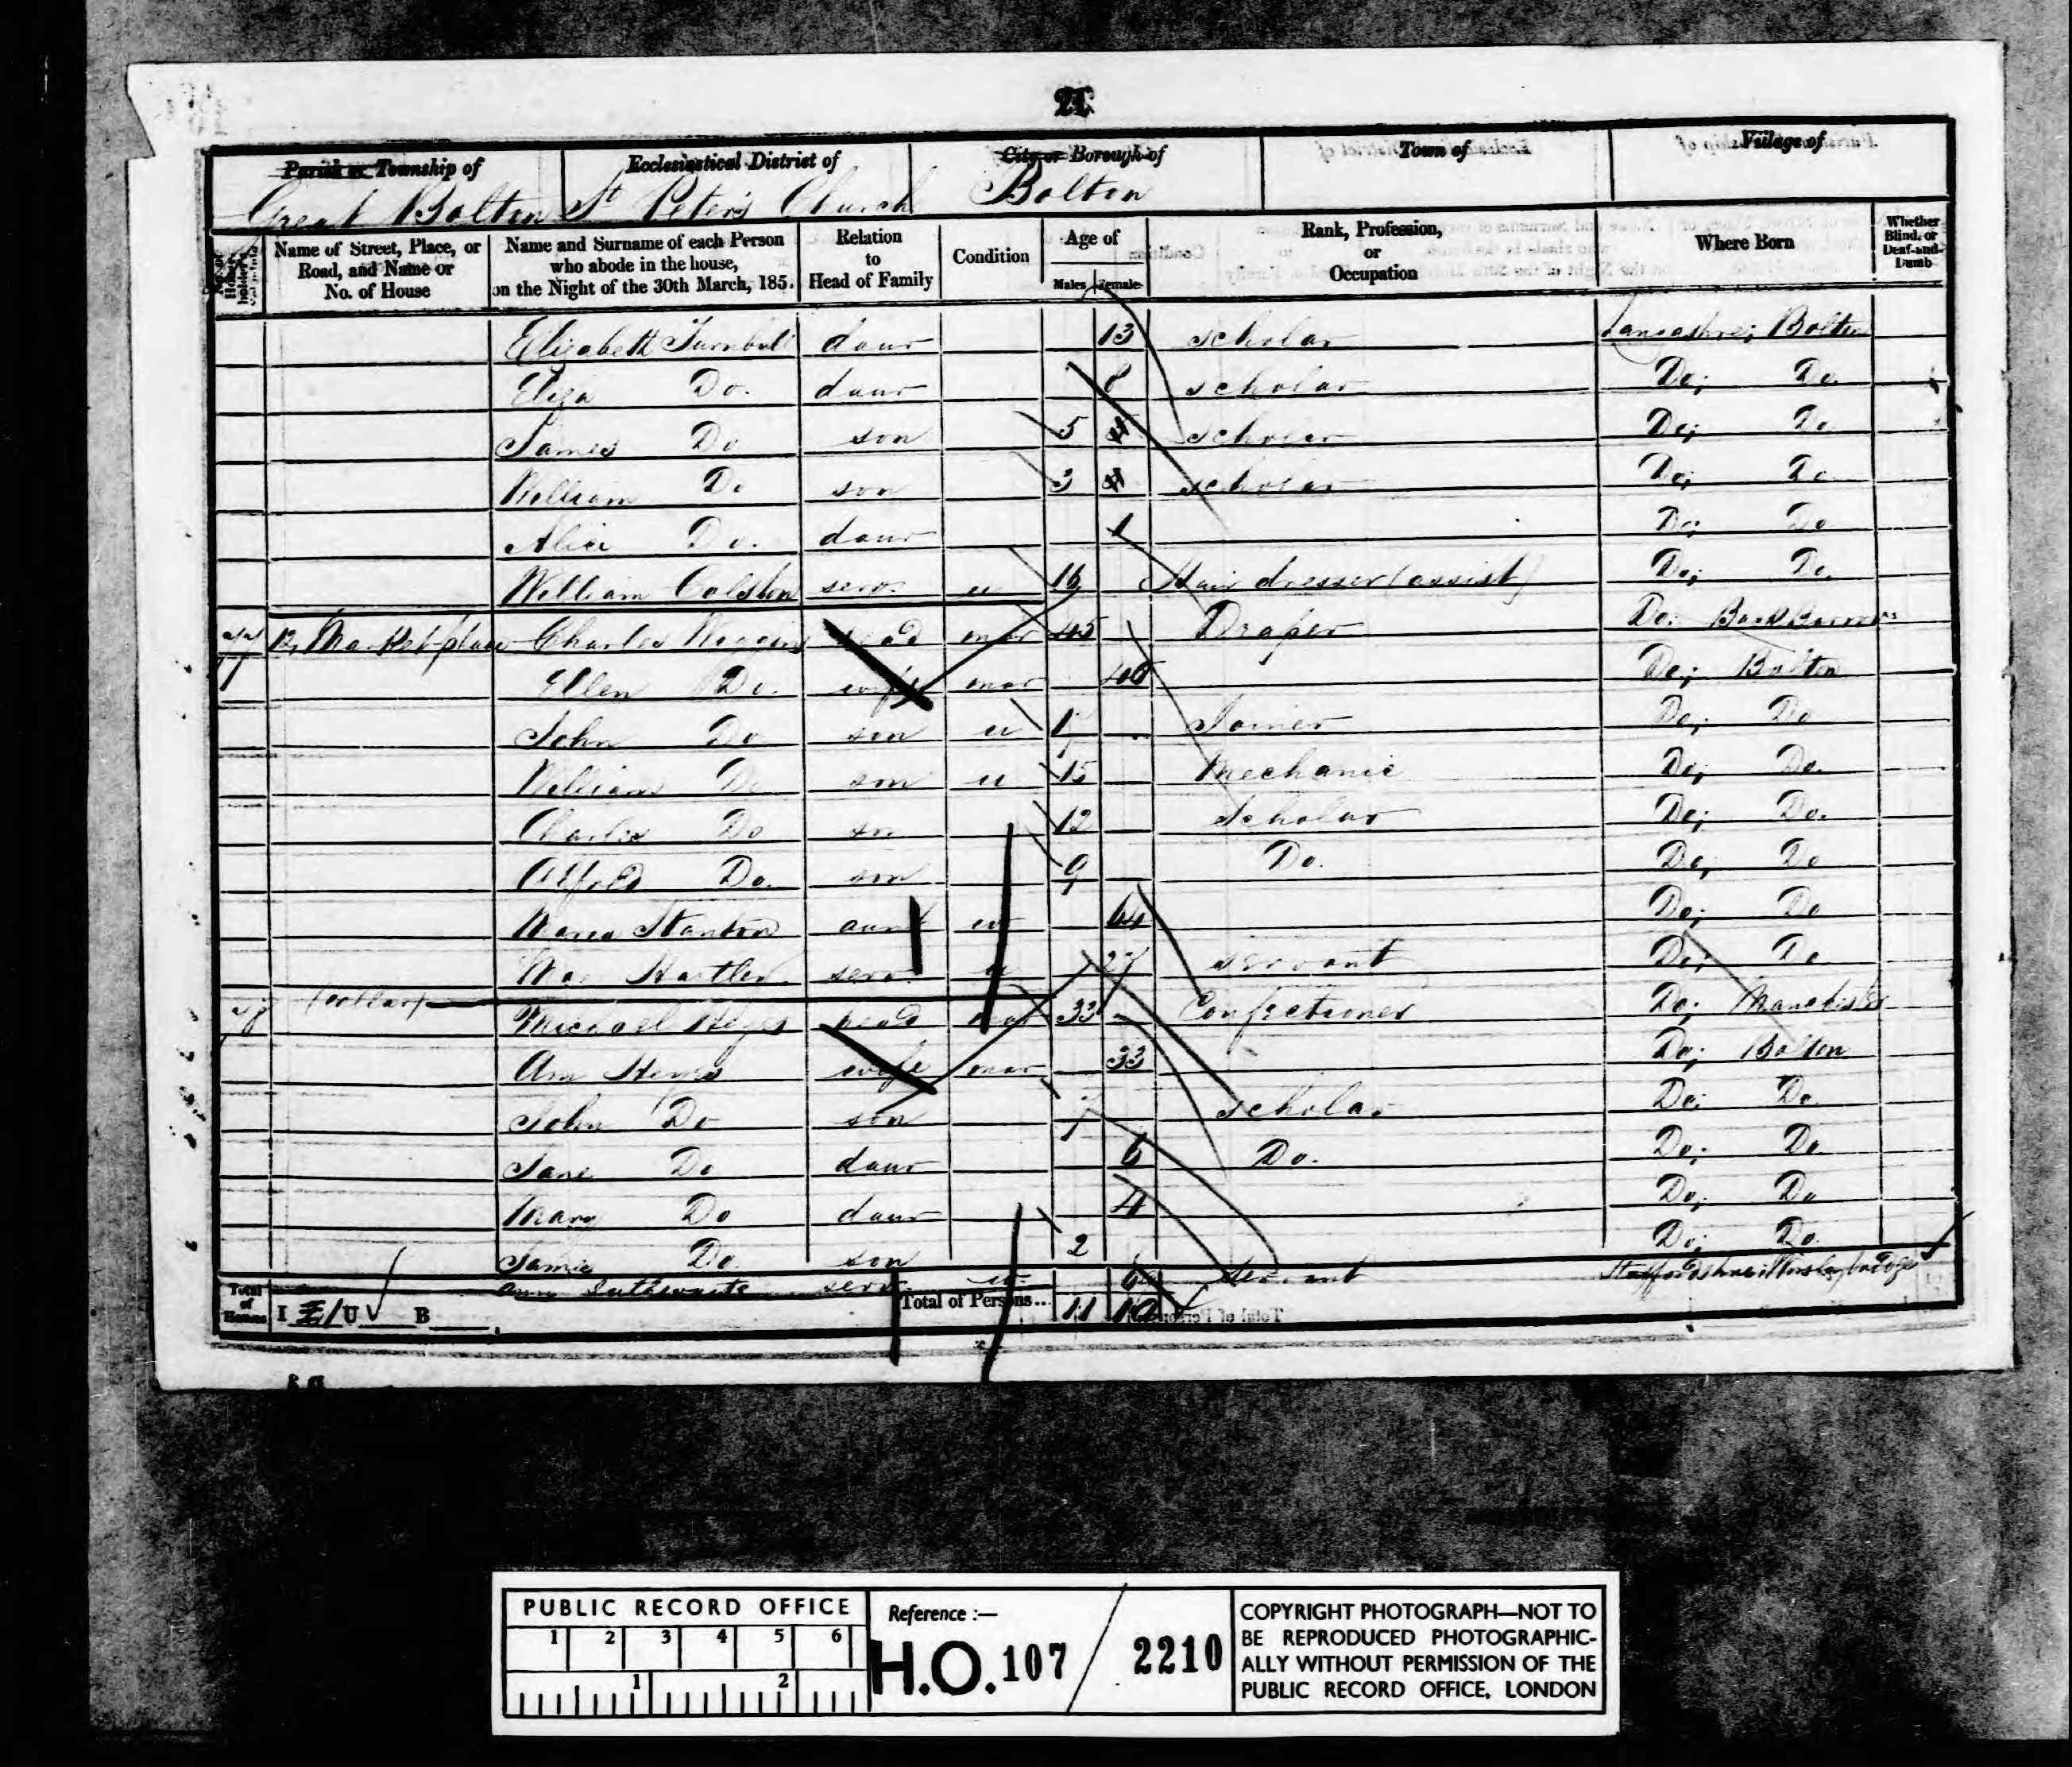 21
Parish or Township of Ecclesiastical District of City or Borough of Town of Village of
Great Bolton St Peter's Church Bolton
Name of Street, Place, or Road, and Name or No. of House
Name and Surname of each Person who abode in the house, on the Night of the 30th March, 185.
Relation to Head of Family
Condition
Age of
Males Female
Rank, Profession, or Occupation
Where Born
Whether Blind, or Deaf-and-Dumb
Elizabeth Turnbull daur 13 scholar Lancashire; Bolton
Eliza Do. daur 8 scholar Do; Do.
James Do son 5 scholar Do; Do
William Do son 3 scholar Do; Do
Alice Do. daur 1 Do; Do
William Colston serv. u 16 Hair dresser (assist) Do; Do.
12, Market place Charles Wiggins head mar 45 Draper Do:
Ellen Do. wife mar 40 Do; Bolton
John Do son u 17 Joiner Do; Do
William Do son u 15 Mechanic Do; Do.
Charles Do son 12 Scholar Do; Do.
Alfred Do. son 9 Do. Do; Do
Maria Stanton aunt 64 Do; Do
Hartley serv u 27 servant Do; Do
(cellar) Michael Heyes head mar 33 Confectioner Do; Manchester
Ann Heyes wife mar 33 Do; Bolton
John Do son 7 scholar Do; Do.
Jane Do daur 6 Do. Do; Do
Mary Do daur 4 Do; Do
James Do. son 2 Do; Do.
Ann serv servant Staffordshire;
Total of Houses I U B
Total of Persons... 11 10
PUBLIC RECORD OFFICE
1 2 3 4 5 6
1 2
Reference :—
H.O. 107 / 2210
COPYRIGHT PHOTOGRAPH—NOT TO
BE REPRODUCED PHOTOGRAPHIC-
ALLY WITHOUT PERMISSION OF THE
PUBLIC RECORD OFFICE, LONDON